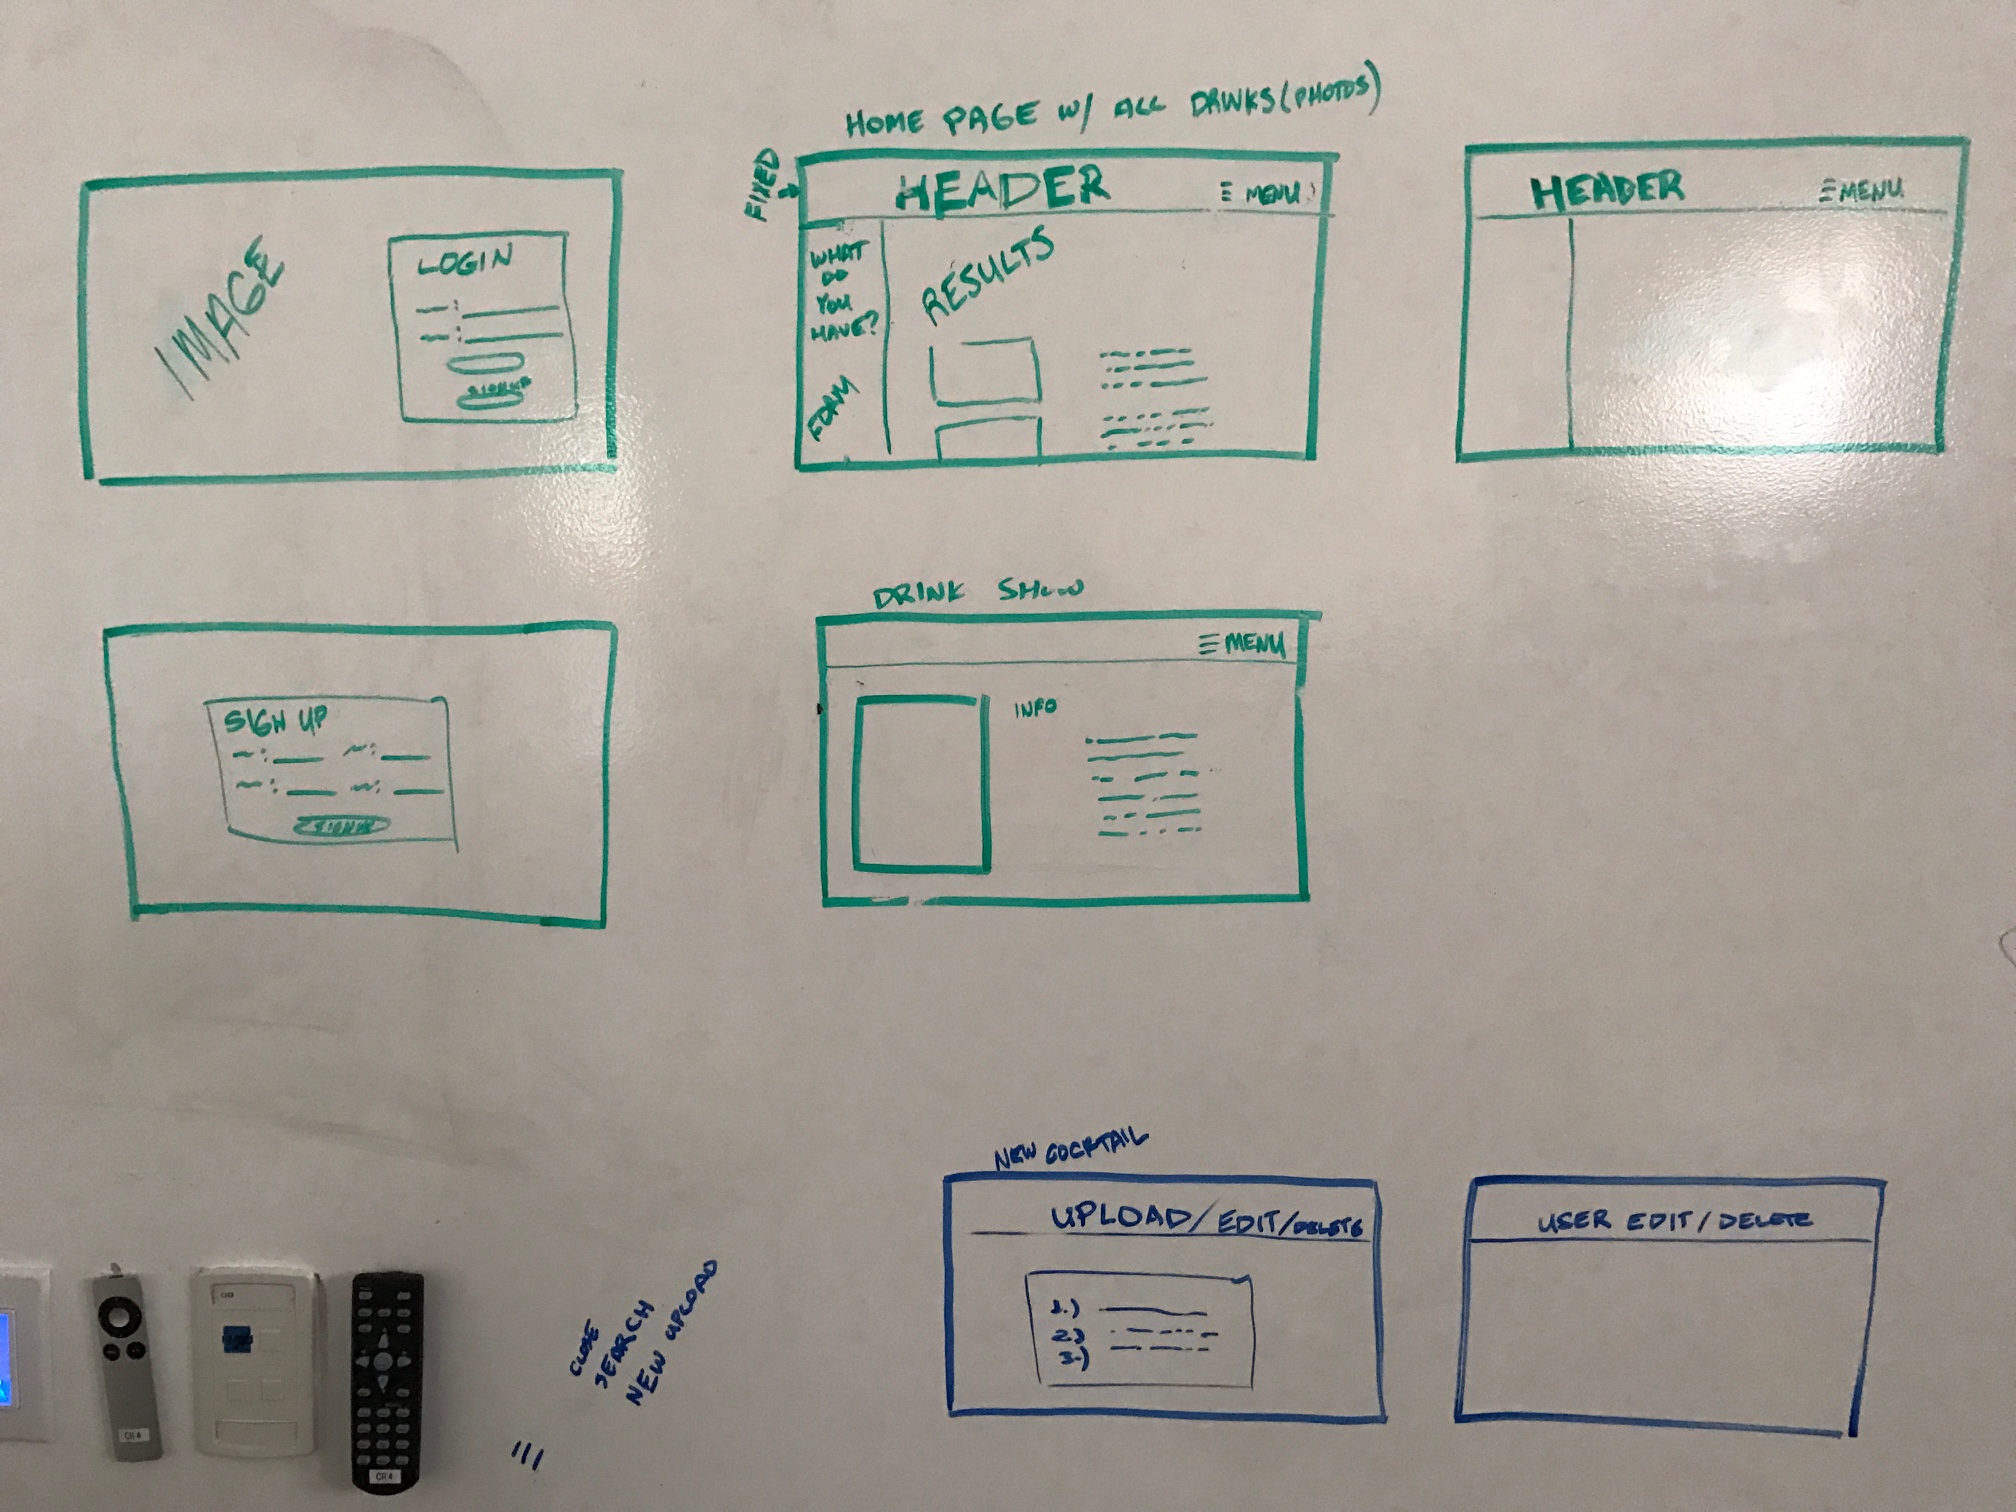 HOME PAGE W/ ALL DRINKS (PHOTOS)
FIXED
IMAGE
LOGIN
SIGN UP
HEADER
≡ MENU
WHAT
DO
YOU
HAVE?
FORM
RESULTS
HEADER
≡ MENU
SIGN UP
SIGN UP
DRINK SHOW
≡ MENU
INFO
NEW COCKTAIL
UPLOAD/EDIT/DELETE
1.)
2.)
3.)
USER EDIT/DELETE
CLOSE
SEARCH
NEW UPLOAD
CR4
CR4